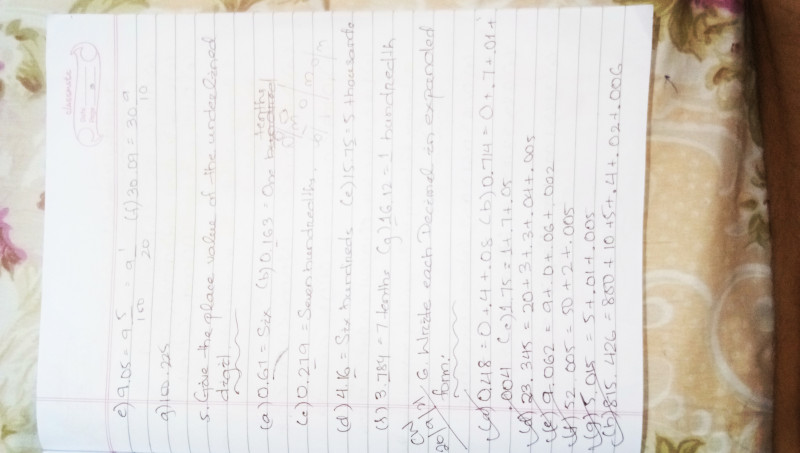 e) 9.05 = 9 5/100 = 9 1/20 (f) 30.09 = 30 9/10
g) 10.225
5. Give the place value of the underlined
digit
(a) 0.61 = Six (b) 0.163 = One tenths
(c) 0.219 = Seven hundredth.
(d) 4.16 = Six hundreds (e) 15.75 = 5 thousants
(f) 3.784 = 7 tenths (g) 16.12 = 1 hundredth
6. Write each Decimal in expanded
form:
(a) 0.48 = 0+.4+.08 (b) 0.714 = 0+.7+.01+
.004 (c) 1.75 = 1+.7+.05
(d) 23.345 = 20+3+.3+.04+.005
(e) 9.062 = 9+.0+.06+.002
(f) 52.005 = 50+2+.005
(g) 5.015 = 5+.01+.005
(h) 815.426 = 800+10+5+.4+.02+.006